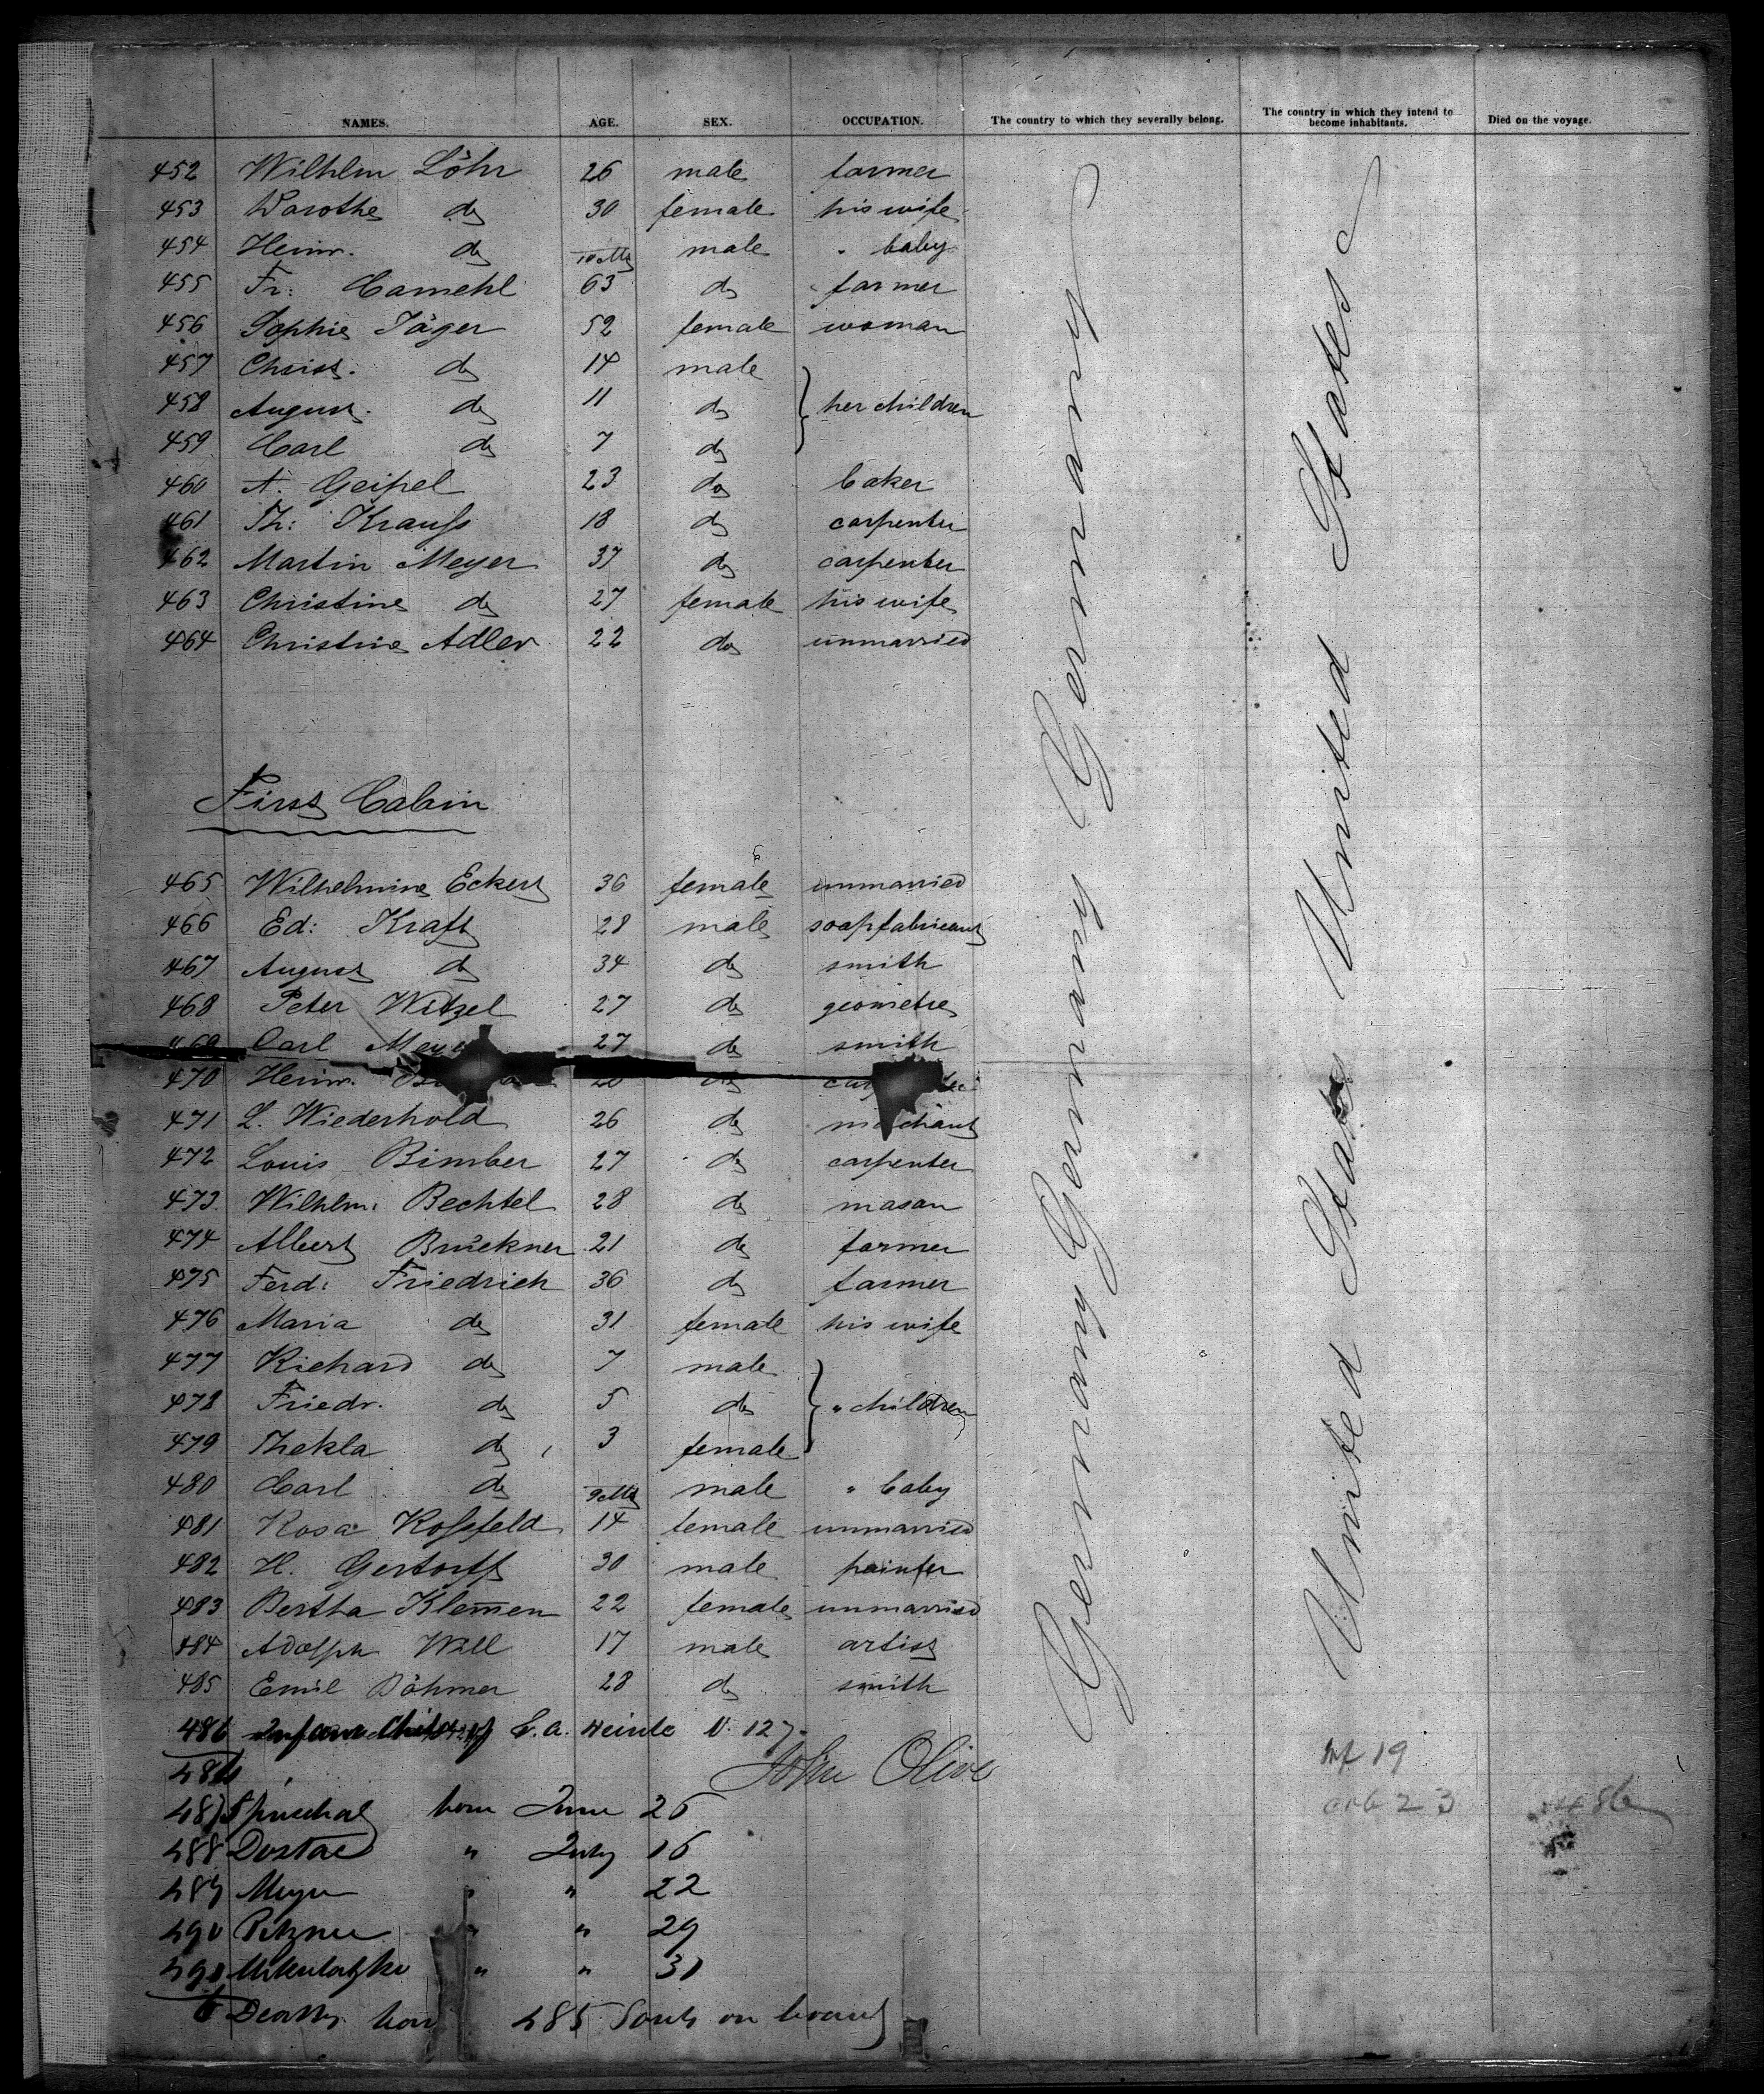 NAMES. AGE. SEX. OCCUPATION. The country to which they severally belong. The country in which they intend to become inhabitants. Died on the voyage.
452 Wilhlm Löhr 26 male farmer
453 Dorothe do 30 female his wife
454 Heinr. do 10 Mts male " baby
455 Fr: Camehl 63 do farmer
456 Sophie Jäger 52 female woman
457 Christ. do 14 male
458 August. do 11 do } her children
459 Carl do 7 do
460 A. Geipel 23 do baker
461 Th: Krauss 18 do carpenter
462 Martin Meyer 37 do carpenter
463 Christine do 27 female his wife
464 Christine Adler 22 do unmarried
First Cabin
465 Wilhelmine Eckert 36 female unmarried
466 Ed: Kraft 28 male soapfabricant
467 August do 34 do smith
468 Peter Witzel 27 do geometre
469 Carl Meyer 27 do smith
470 Heinr. do
471 L. Wiederhold 26 do merchant
472 Louis Bimber 27 do carpenter
473. Wilhlm. Bechtel 28 do mason
474 Albert Brückner 21 do farmer
475 Ferd: Friedrich 36 do farmer
476 Maria do 31 female his wife
477 Richard do 7 male
478 Friedr. do 5 do } " children
479 Thekla do 3 female
480 Carl do 9 Mts male " baby
481 Rosa Kossfeld 14 female unmarried
482 H. Gertorff 30 male painter
483 Bertha Klem̅en 22 female unmarried
484 Adolph Will 17 male artist
485 Emil Böhmer 28 do smith
486 Infant Child of E. A. Heinle N. 127.
486
John Olive
487 born June 26
488 Dostal " July 16
489 Meyer " " 22
490 " " 29
491 " " 31
6 Deaths 485 Souls on board
Germany Germany Germany Germany
United States United States
19
23
486